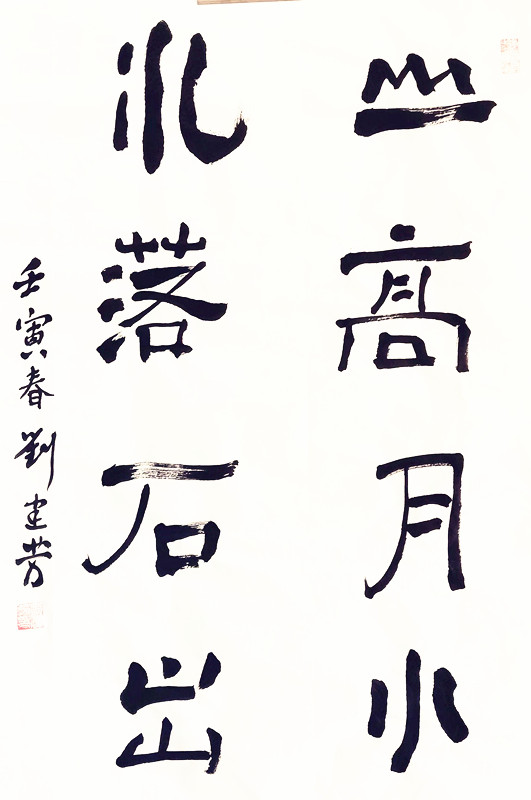 山高月小
水落石出
壬寅春劉建芳